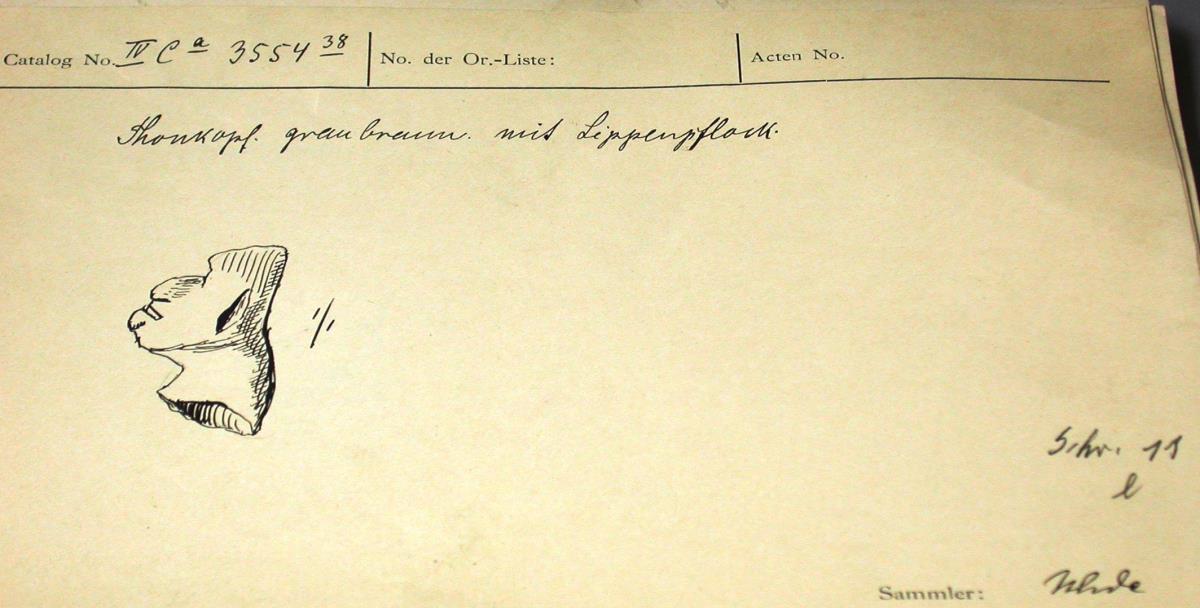 Catalog No. IV Ca 3554 38 No. der Or.-Liste: Acten No.
Thonkopf. graubraun. mit Lippenpflock.
1/1
Schr. 11
l
Sammler: Uhde